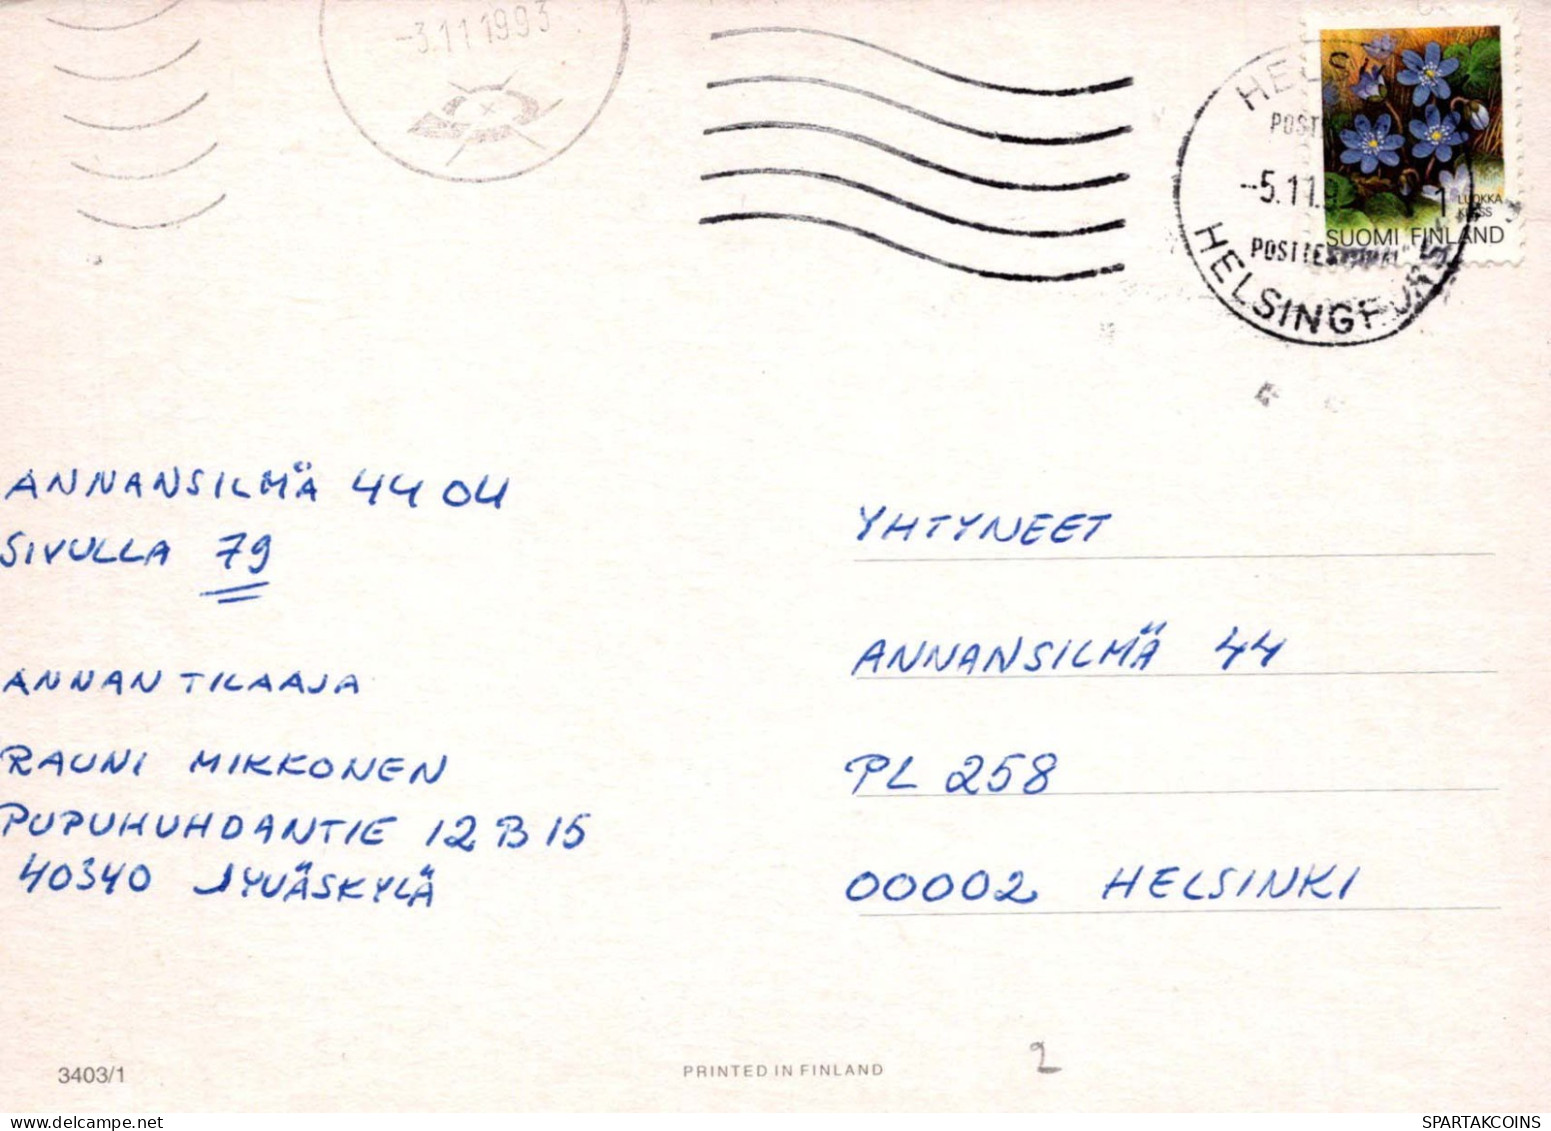 -3.11 1993
HELS
POST
--5.11.9
POSTTE
HELSINGFORS
1 LUOKKA
KLASS
SUOMI FINLAND
ANNANSILMÄ 44 OU
SIVULLA 79
ANNAN TILAAJA
RAUNI MIKKONEN
PUPUHUHDANTIE 12 B 15
40340 JYVÄSKYLÄ
YHTYNEET
ANNANSILMÄ 44
PL 258
00002 HELSINKI
3403/1
PRINTED IN FINLAND
2
SPARTAKCOINS
https://www.delcampe.net